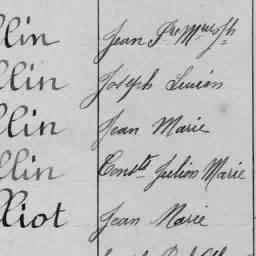 llin Jean Pre Marie Jph
llin Joseph Lucien
llin Jean Marie
llin Const. Julien Marie
lliot Jean Marie